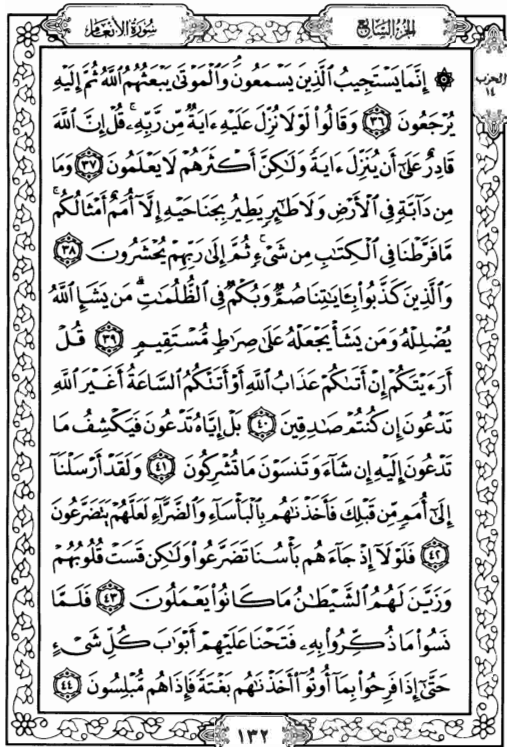 سُورَةُ الأَنْعَام
الجُزْءُ السَّابِعُ
الحزب
١٤
۞ إِنَّمَا يَسْتَجِيبُ ٱلَّذِينَ يَسْمَعُونَۘ وَٱلْمَوْتَىٰ يَبْعَثُهُمُ ٱللَّهُ ثُمَّ إِلَيْهِ
يُرْجَعُونَ ٣٦ وَقَالُوا۟ لَوْلَا نُزِّلَ عَلَيْهِ ءَايَةٌ مِّن رَّبِّهِۦۚ قُلْ إِنَّ ٱللَّهَ
قَادِرٌ عَلَىٰٓ أَن يُنَزِّلَ ءَايَةً وَلَـٰكِنَّ أَكْثَرَهُمْ لَا يَعْلَمُونَ ٣٧ وَمَا
مِن دَآبَّةٍ فِى ٱلْأَرْضِ وَلَا طَـٰٓئِرٍ يَطِيرُ بِجَنَاحَيْهِ إِلَّآ أُمَمٌ أَمْثَالُكُمۚ
مَّا فَرَّطْنَا فِى ٱلْكِتَـٰبِ مِن شَىْءٍۚ ثُمَّ إِلَىٰ رَبِّهِمْ يُحْشَرُونَ ٣٨
وَٱلَّذِينَ كَذَّبُوا۟ بِـَٔايَـٰتِنَا صُمٌّ وَبُكْمٌ فِى ٱلظُّلُمَـٰتِۗ مَن يَشَإِ ٱللَّهُ
يُضْلِلْهُ وَمَن يَشَأْ يَجْعَلْهُ عَلَىٰ صِرَٰطٍ مُّسْتَقِيمٍ ٣٩ قُلْ
أَرَءَيْتَكُمْ إِنْ أَتَىٰكُمْ عَذَابُ ٱللَّهِ أَوْ أَتَتْكُمُ ٱلسَّاعَةُ أَغَيْرَ ٱللَّهِ
تَدْعُونَ إِن كُنتُمْ صَـٰدِقِينَ ٤٠ بَلْ إِيَّاهُ تَدْعُونَ فَيَكْشِفُ مَا
تَدْعُونَ إِلَيْهِ إِن شَآءَ وَتَنسَوْنَ مَا تُشْرِكُونَ ٤١ وَلَقَدْ أَرْسَلْنَآ
إِلَىٰٓ أُمَمٍ مِّن قَبْلِكَ فَأَخَذْنَـٰهُم بِٱلْبَأْسَآءِ وَٱلضَّرَّآءِ لَعَلَّهُمْ يَتَضَرَّعُونَ
٤٢ فَلَوْلَآ إِذْ جَآءَهُم بَأْسُنَا تَضَرَّعُوا۟ وَلَـٰكِن قَسَتْ قُلُوبُهُمْ
وَزَيَّنَ لَهُمُ ٱلشَّيْطَـٰنُ مَا كَانُوا۟ يَعْمَلُونَ ٤٣ فَلَمَّا
نَسُوا۟ مَا ذُكِّرُوا۟ بِهِۦ فَتَحْنَا عَلَيْهِمْ أَبْوَٰبَ كُلِّ شَىْءٍ
حَتَّىٰٓ إِذَا فَرِحُوا۟ بِمَآ أُوتُوٓا۟ أَخَذْنَـٰهُم بَغْتَةً فَإِذَا هُم مُّبْلِسُونَ ٤٤
١٣٢